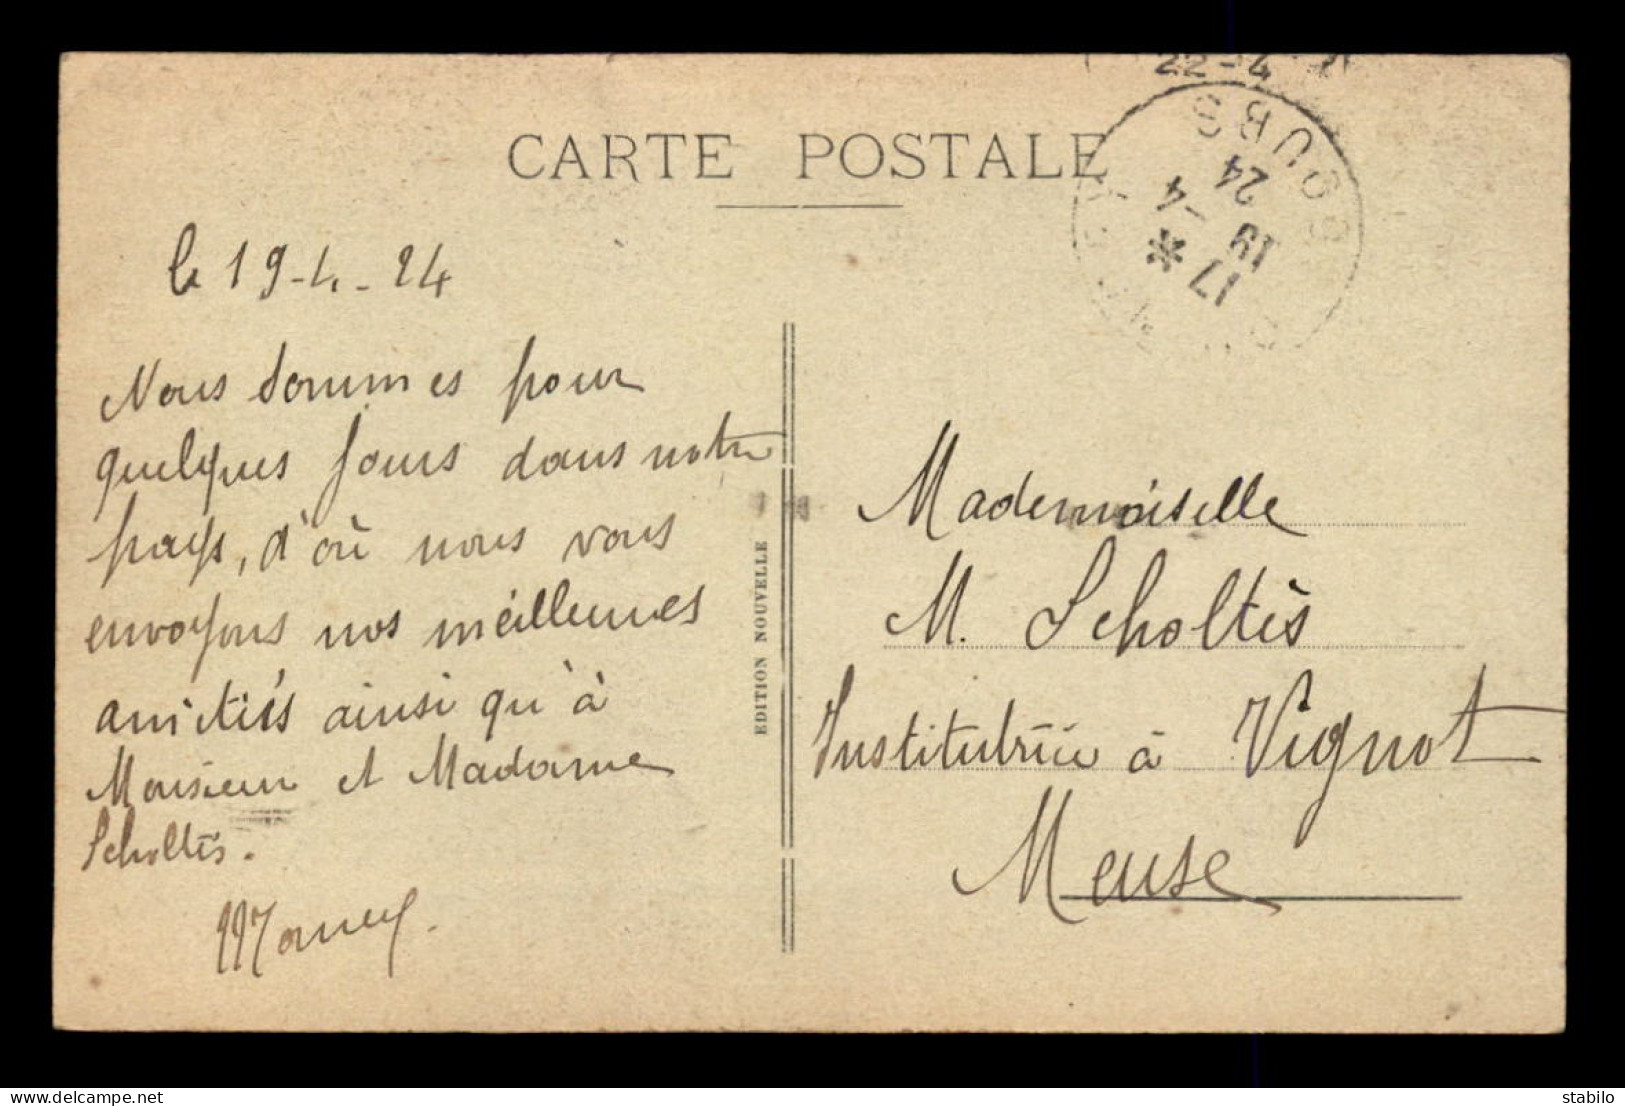 22-4
CARTE POSTALE
17 *
19 -4
24
le 19-4-24
Nous sommes pour
quelques jours dans notre
pays, d'où nous vous
envoyons nos meilleures
amitiés ainsi qu'à
Monsieur et Madame
Scholtès.
EDITION NOUVELLE
Mademoiselle
M. Scholtès
Institutrice à Vignot
Meuse
www.delcampe.net
stabilo